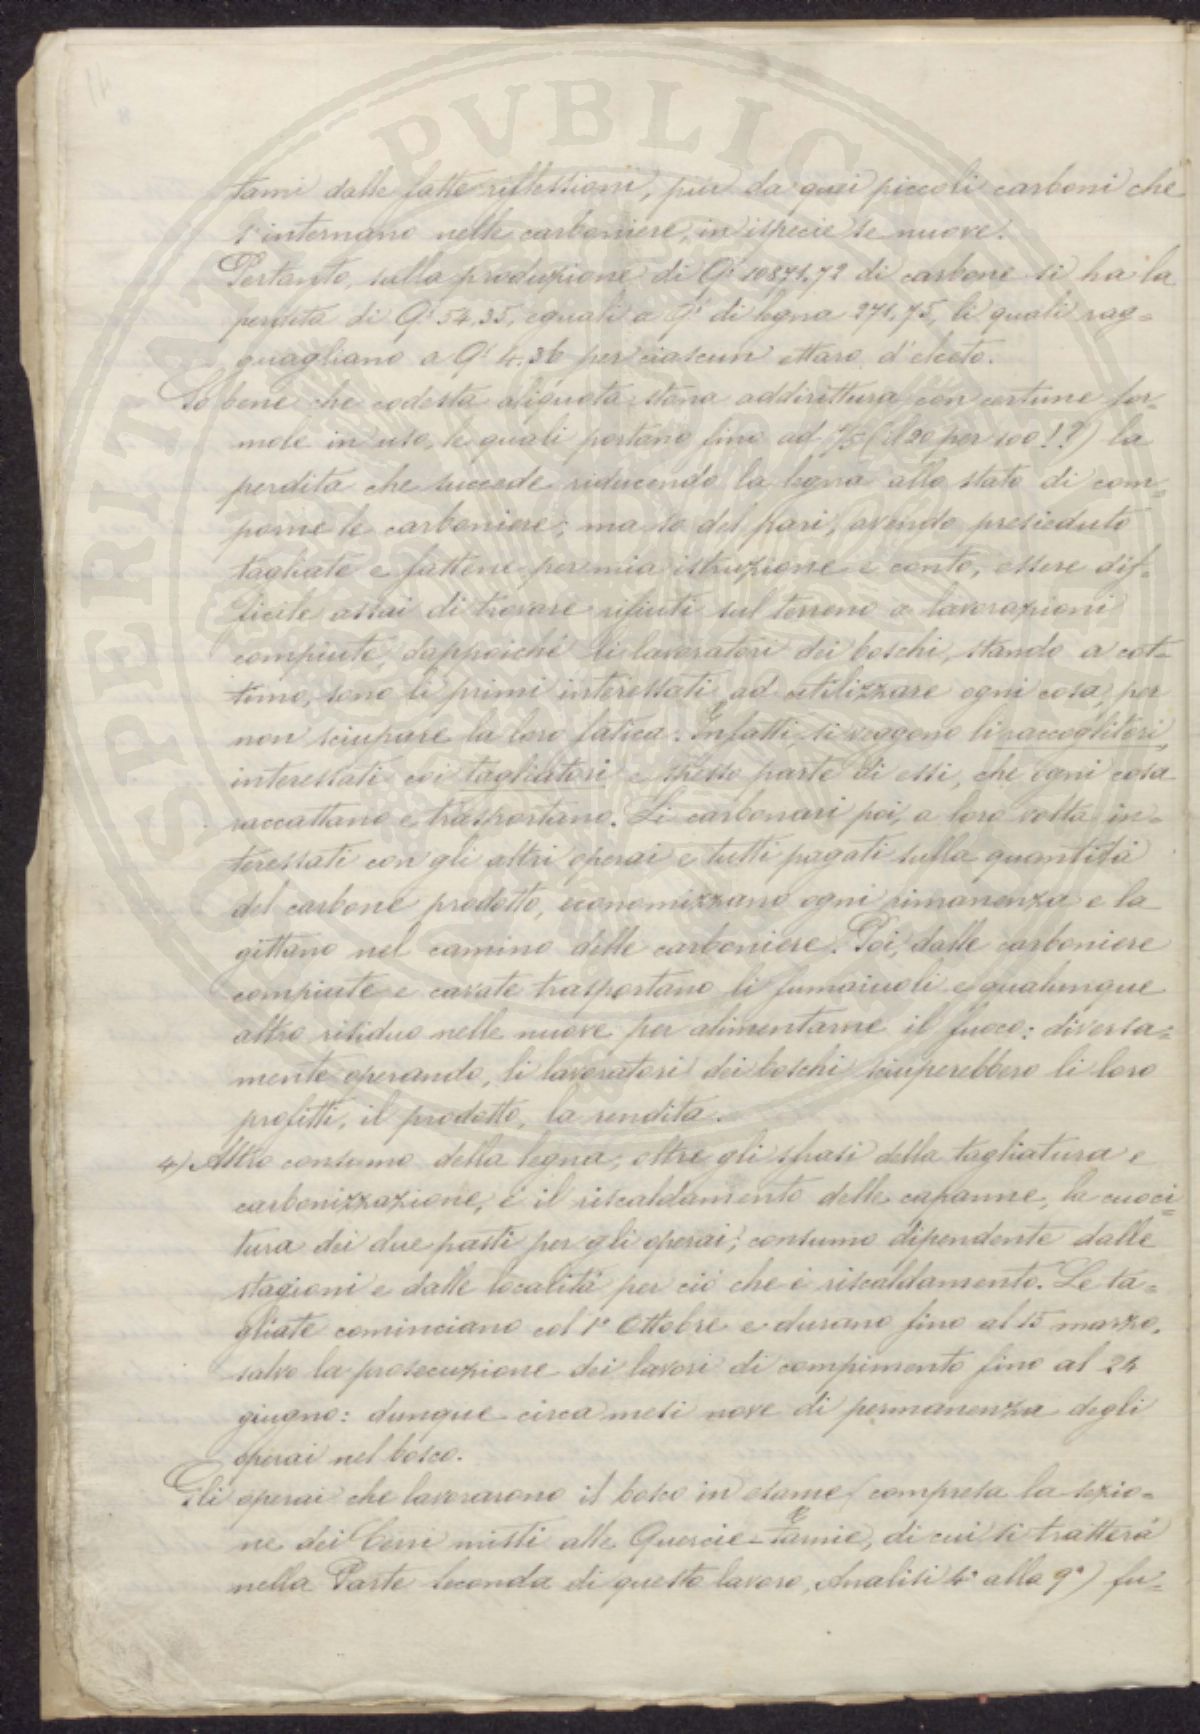 tami dalle fatte riflessioni, pur da quei piccoli carboni che
s'internano nelle carboniere, in ispecie se nuove.
Pertanto, sulla produzione di Ql 10871.72 di carbone si ha la
perdita di Ql 54.35, eguali a Ql di legna 271,75, li quali rag=
guagliano a Ql 4.36 per ciascun ettaro d'elceto.
So bene che codesta aliquota stona addirittura con certune for=
mole in uso, le quali portano fino ad 1/5 (il 20 per 100!?) la
perdita che succede riducendo la legna allo stato di com=
porne le carboniere; ma so del pari, avendo presieduto
tagliate e fattene per mia istruzione e conto, essere dif=
ficile assai di trovare rifiuti sul terreno a lavorazioni
compiute, dappoiché li lavoratori dei boschi, stando a cot=
timo, sono li primi interessati ad utilizzare ogni cosa, per
non sciupare la loro fatica. Infatti, si veggono li raccoglitori,
interessati coi tagliatori e spesso parte di essi, che ogni cosa
raccattano e trasportano. Li carbonari poi, a loro volta in=
teressati con gli altri operai e tutti pagati sulla quantità
del carbone prodotto, economizzano ogni rimanenza e la
gittano nel camino delle carboniere. Poi, dalle carboniere
compiute e cavate trasportano li fumaiuoli e qualunque
altro residuo nelle nuove per alimentarne il fuoco: diversa=
mente operando, li lavoratori dei boschi sciuperebbero li loro
profitti, il prodotto, la rendita.
4) Altro consumo della legna, oltre gli sfrasi della tagliatura e
carbonizzazione, è il riscaldamento delle capanne, la cuoci=
tura dei due pasti per gli operai; consumo dipendente dalle
stagioni e dalle località per ciò che è riscaldamento. Le ta=
gliate cominciano col 1° Ottobre e durano fino al 15 marzo,
salvo la prosecuzione dei lavori di compimento fino al 24
giugno: dunque circa mesi nove di permanenza degli
operai nel bosco.
Gli operai che lavorarono il bosco in esame (compresa la sezio=
ne dei Cerri misti alle Quercie=, di cui si tratterà
nella Parte Seconda di questo lavoro, Analisi 4ª alla 9ª) fu=
PVBLICAE
PROSPERITATI